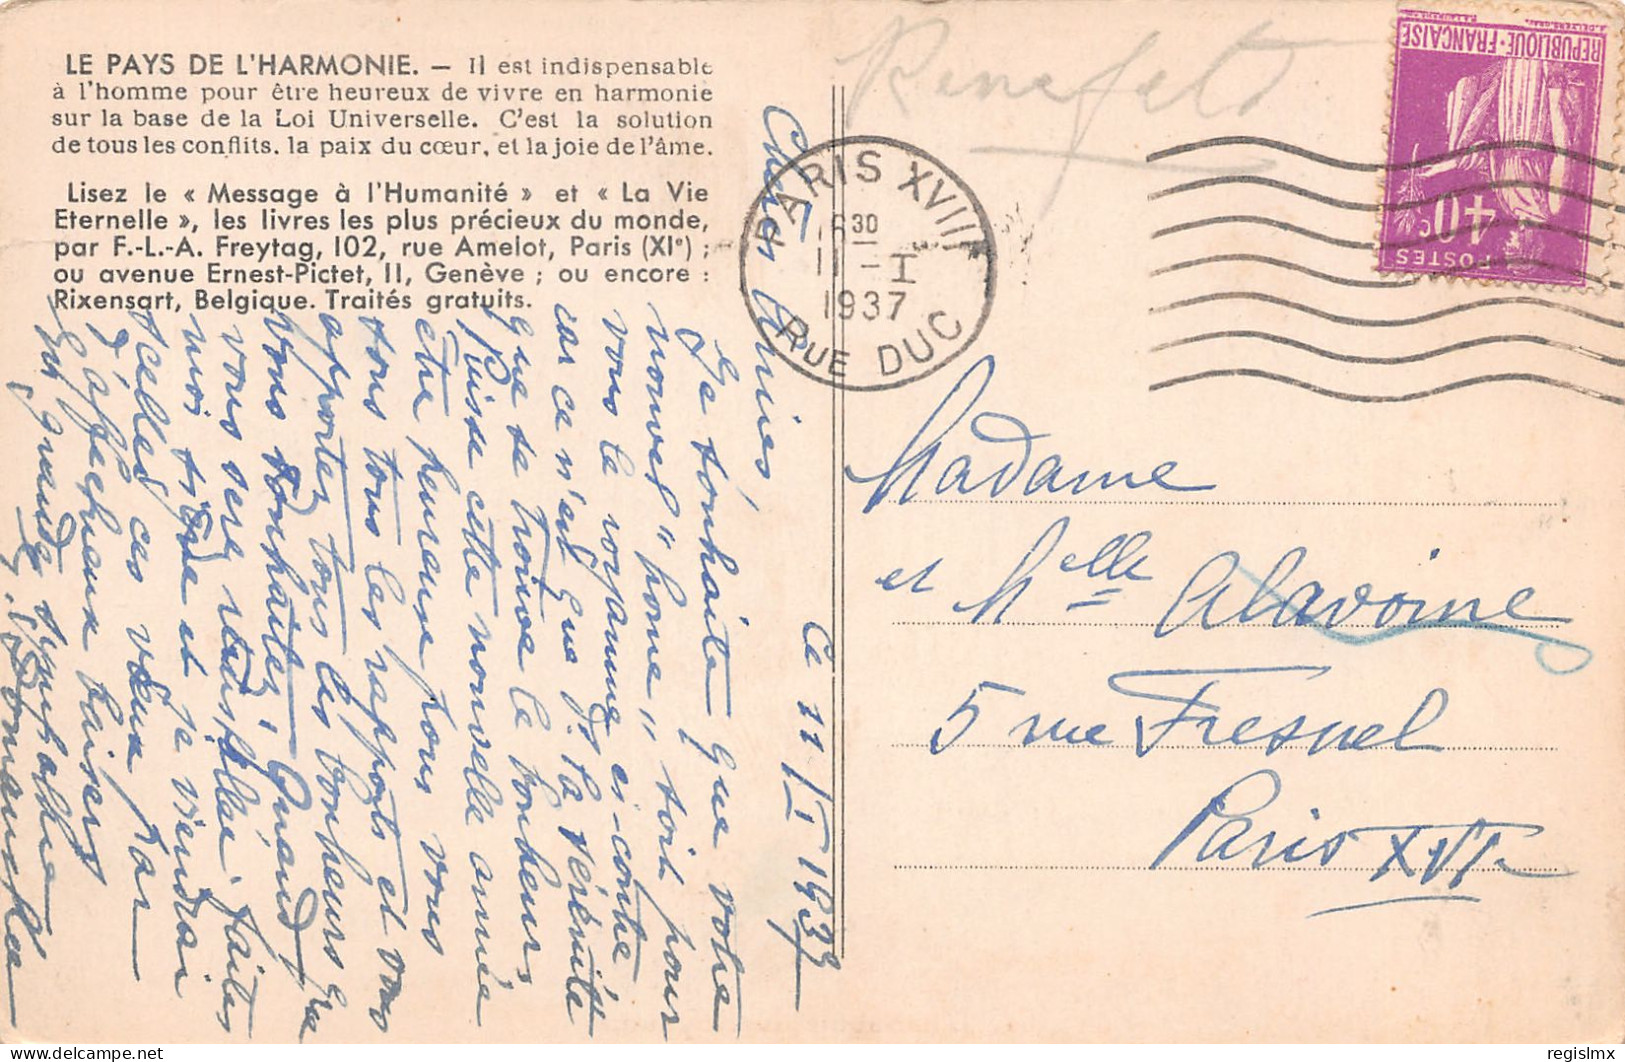 LE PAYS DE L'HARMONIE. — Il est indispensable
à l'homme pour être heureux de vivre en harmonie
sur la base de la Loi Universelle. C'est la solution
de tous les conflits, la paix du cœur, et la joie de l'âme.
Lisez le « Message à l'Humanité » et « La Vie
Eternelle », les livres les plus précieux du monde,
par F.-L.-A. Freytag, 102, rue Amelot, Paris (XIe) ;
ou avenue Ernest-Pictet, 11, Genève ; ou encore :
Rixensart, Belgique. Traités gratuits.
Ce 11/I 1937
Chères Amies,
Je souhaite que votre
nouvel "home" soit pour
vous le royaume ci-contre
car ce n'est que ds la sérénité
que se trouve le bonheur,
Puisse cette nouvelle année
être heureuse pour vous
sous tous les rapports et vous
apporter tous les bonheurs que
vous souhaitez, Quand
vous serez faites
moi signe et je viendrai
sceller ces vœux par
d'affectueux baisers
En grande sympathie
PARIS XVIII
1630
11 - I
1937
RUE DUC
REPUBLIQUE·FRANÇAISE
40c
POSTES
Madame
et Melle Alavoine
5 rue Fresnel
Paris XVI
delcampe.net
regislmx